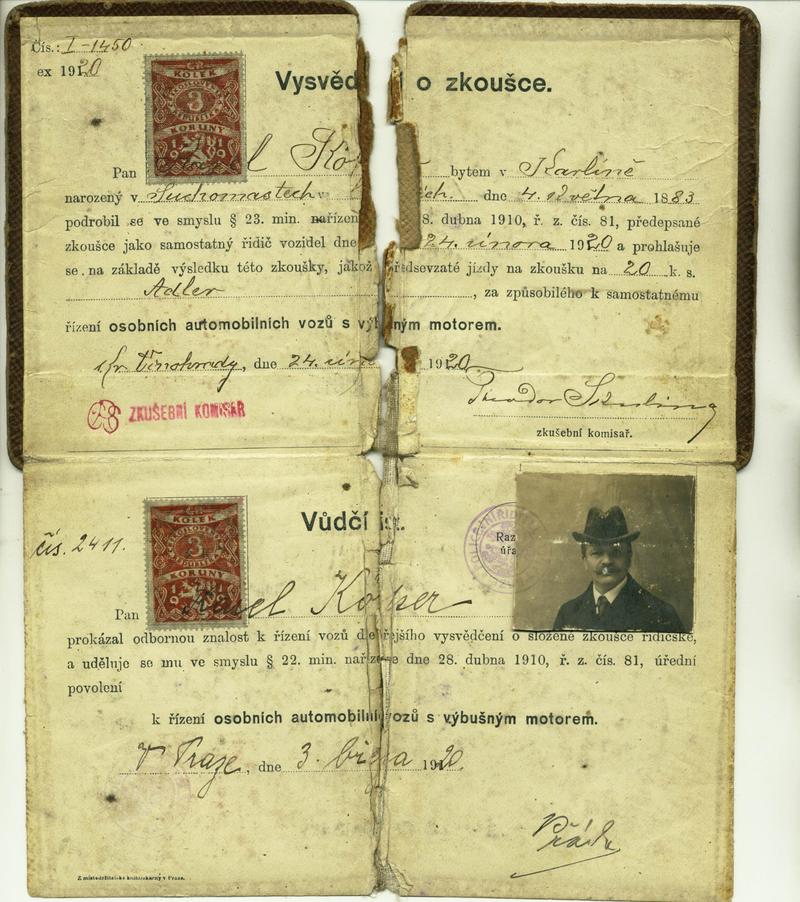 Čís.: I-1450
ex 1920
KOLEK
3
KORUNY
1919
Vysvěd o zkoušce.
Pan bytem v Karlíně
narozený v Suchomastech dne 4. května 1883
podrobil se ve smyslu § 23. min. nařízen 8. dubna 1910, ř. z. čís. 81, předepsané
zkoušce jako samostatný řidič vozidel dne 24. února 1920 a prohlašuje
se na základě výsledku této zkoušky, jakož předsevzaté jízdy na zkoušku na 20 k. s.
Adler , za způsobilého k samostatnému
řízení osobních automobilních vozů s výbušným motorem.
Kr. Vinohrady, dne 24. ún 1920
ZKUŠEBNÍ KOMISAR
Theodor
zkušební komisař.
čís. 2411.
KOLEK
3
KORUNY
1919
Vůdčí list.
Raz
úřa
Pan Karel
prokázal odbornou znalost k řízení vozů dřejšího vysvědčení o složené zkoušce řidičské,
a uděluje se mu ve smyslu § 22. min. naříze ze dne 28. dubna 1910, ř. z. čís. 81, úřední
povolení
k řízení osobních automobilní vozů s výbušným motorem.
V Praze, dne 3. března 1920
Z místodržitelské knihtiskárny v Praze.